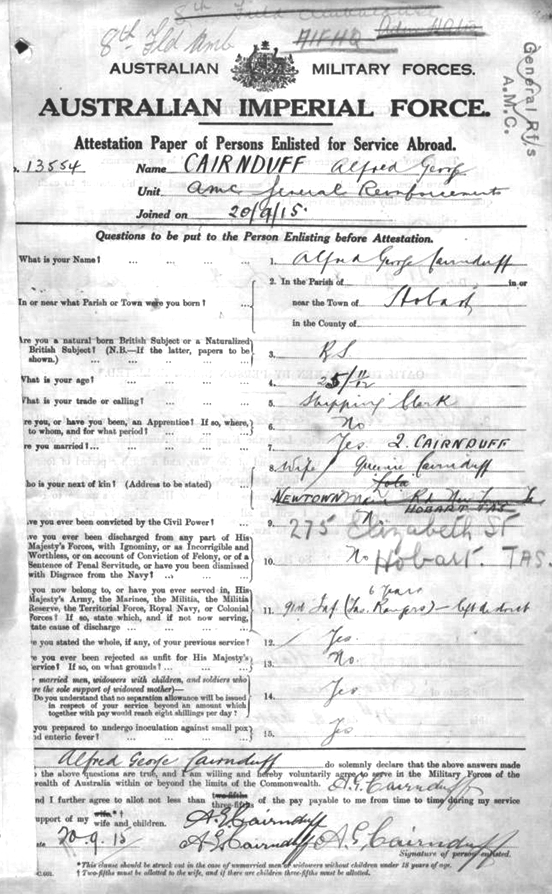 8th Field Ambulance
8th Fld Amb AIFHQ
General Rf/s
A.M.C.
AUSTRALIAN MILITARY FORCES.
AUSTRALIAN IMPERIAL FORCE.
Attestation Paper of Persons Enlisted for Service Abroad.
o. 13554 Name CAIRNDUFF Alfred George
Unit amc General Reinforcements
Joined on 20/9/15.
Questions to be put to the Person Enlisting before Attestation.
What is your Name? ... ... ... ... 1. Alfred George Cairnduff
In or near what Parish or Town were you born? ... 2. In the Parish of in or
near the Town of Hobart
in the County of
Are you a natural born British Subject or a Naturalized
British Subject? (N.B.—If the latter, papers to be
shown.) ... ... ... ... 3.
What is your age? ... ... ... ... 4. 25 /12
What is your trade or calling? ... ... ... 5. Shipping Clerk
re you, or have you been, an Apprentice? If so, where,
to whom, and for what period? ... ... ... 6. No
re you married? ... ... ... ... 7. Yes Q. CAIRNDUFF
ho is your next of kin? (Address to be stated) ... 8. Wife Queenie Cairnduff
Lola
NEWTOWN Main Rd New Town
HOBART TAS
ve you ever been convicted by the Civil Power? ... 9. No
275 Elizabeth St
Hobart. TAS.
ve you ever been discharged from any part of His
Majesty's Forces, with Ignominy, or as Incorrigible and
Worthless, or on account of Conviction of Felony, or of a
Sentence of Penal Servitude, or have you been dismissed
with Disgrace from the Navy? ... ... 10. No
you now belong to, or have you ever served in, His
Majesty's Army, the Marines, the Militia, the Militia
Reserve, the Territorial Force, Royal Navy, or Colonial
Forces? If so, state which, and if not now serving,
state cause of discharge ... ... ... 11. 91st Inf (Tas. Rangers) – 6 years left district
ve you stated the whole, if any, of your previous service? 12. Yes.
re you ever been rejected as unfit for His Majesty's
Service? If so, on what grounds? ... ... 13. No.
married men, widowers with children, and soldiers who
are the sole support of widowed mother)—
Do you understand that no separation allowance will be issued
in respect of your service beyond an amount which
together with pay would reach eight shillings per day? 14. Yes
you prepared to undergo inoculation against small pox
nd enteric fever? ... ... ... ... 15. Yes
Alfred George Cairnduff do solemnly declare that the above answers made
o the above questions are true, and I am willing and hereby voluntarily agree to serve in the Military Forces of the
wealth of Australia within or beyond the limits of the Commonwealth. A.G. Cairnduff
And I further agree to allot not less than two-fifths three-fifths of the pay payable to me from time to time during my service
support of my wife*† wife and children. A.G. Cairnduff
ate 20-9-15 A G Cairnduff A G Cairnduff
Signature of person enlisted.
*This clause should be struck out in the case of unmarried men or widowers without children under 18 years of age.
† Two-fifths must be allotted to the wife, and if there are children three-fifths must be allotted.